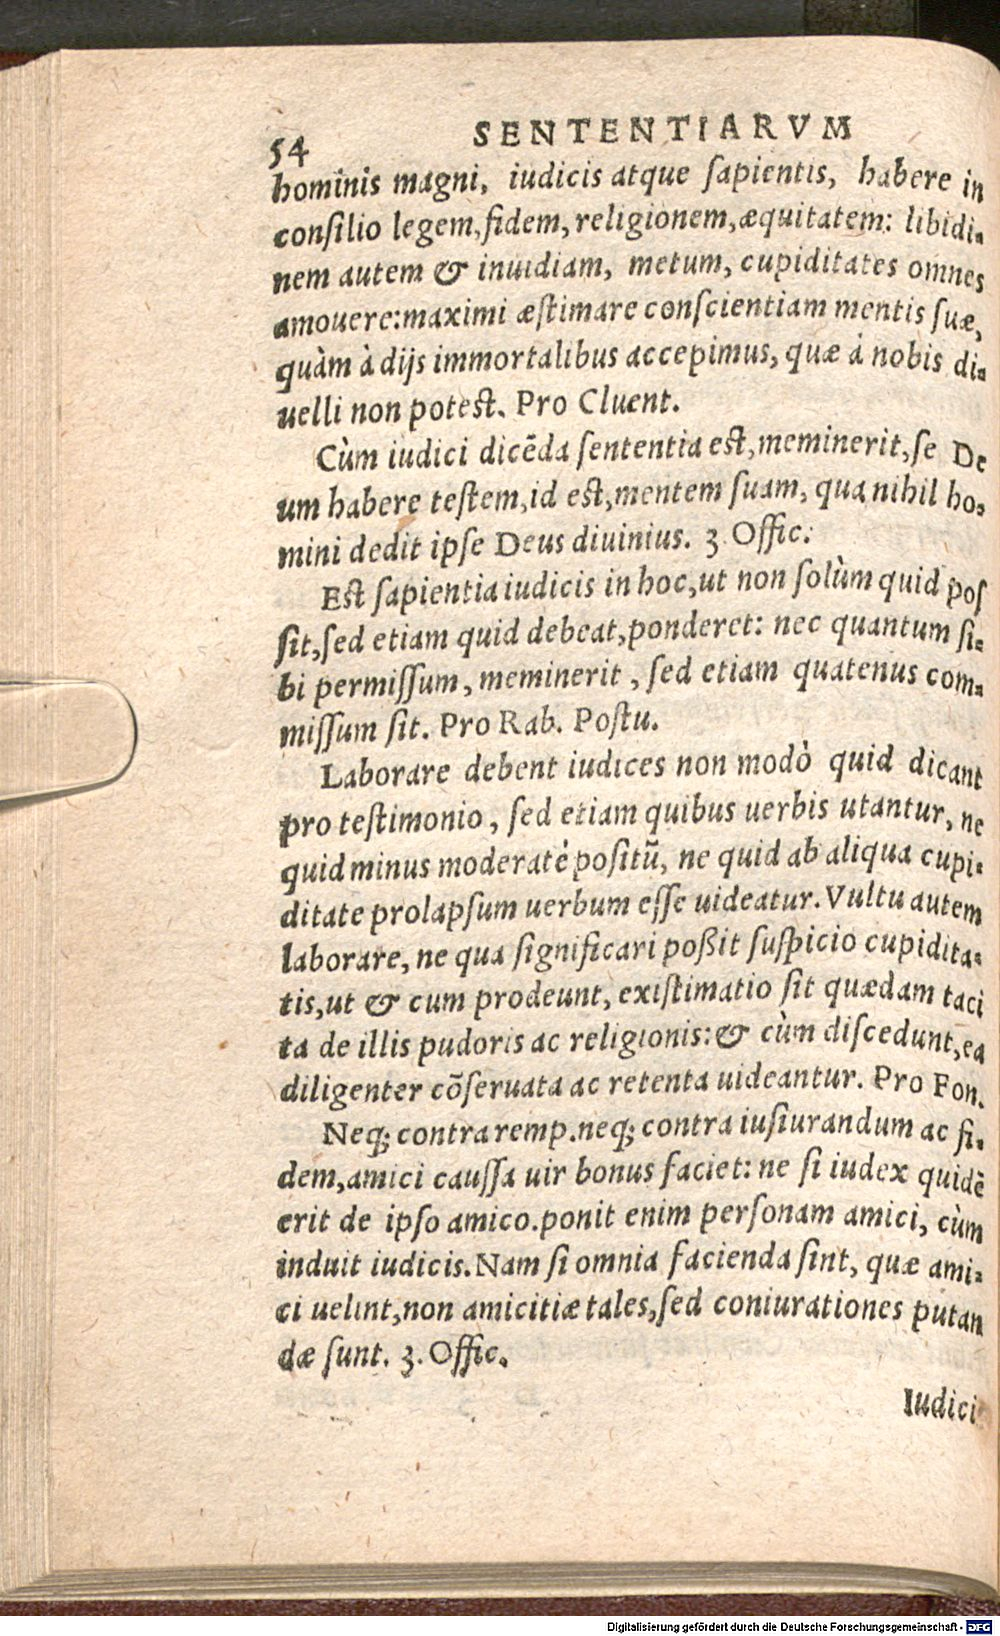 54 SENTENTIARVM
hominis magni, iudicis atque ſapientis, habere in
conſilio legem, fidem, religionem, æquitatem: libidi-
nem autem & inuidiam, metum, cupiditates omnes
amouere: maximi æſtimare conſcientiam mentis ſuæ,
quàm à dijs immortalibus accepimus, quæ à nobis di-
uelli non poteſt. Pro Cluent.
Cùm iudici dicẽda ſententia eſt, meminerit, ſe De
um habere teſtem, id eſt, mentem ſuam, qua nihil ho-
mini dedit ipſe Deus diuinius. 3 Offic.
Eſt ſapientia iudicis in hoc, ut non ſolùm quid poſ
ſit, ſed etiam quid debeat, ponderet: nec quantum ſi-
bi permiſſum, meminerit, ſed etiam quatenus com-
miſſum ſit. Pro Rab. Poſtu.
Laborare debent iudices non modò quid dicant
pro teſtimonio, ſed etiam quibus uerbis utantur, ne
quid minus moderatè poſitũ, ne quid ab aliqua cupi-
ditate prolapſum uerbum eſſe uideatur. Vultu autem
laborare, ne qua ſignificari poßit ſuſpicio cupidita-
tis, ut & cum prodeunt, exiſtimatio ſit quædam taci
ta de illis pudoris ac religionis: & cùm diſcedunt, ea
diligenter cõſeruata ac retenta uideantur. Pro Fon.
Neq; contra remp. neq; contra iuſiurandum ac fi-
dem, amici cauſſa uir bonus faciet: ne ſi iudex quidẽ
erit de ipſo amico. ponit enim perſonam amici, cùm
induit iudicis. Nam ſi omnia facienda ſint, quæ ami-
ci uelint, non amicitiæ tales, ſed coniurationes putan
dæ ſunt. 3. Offic.
Iudici
Digitalisierung gefördert durch die Deutsche Forschungsgemeinschaft - DFG